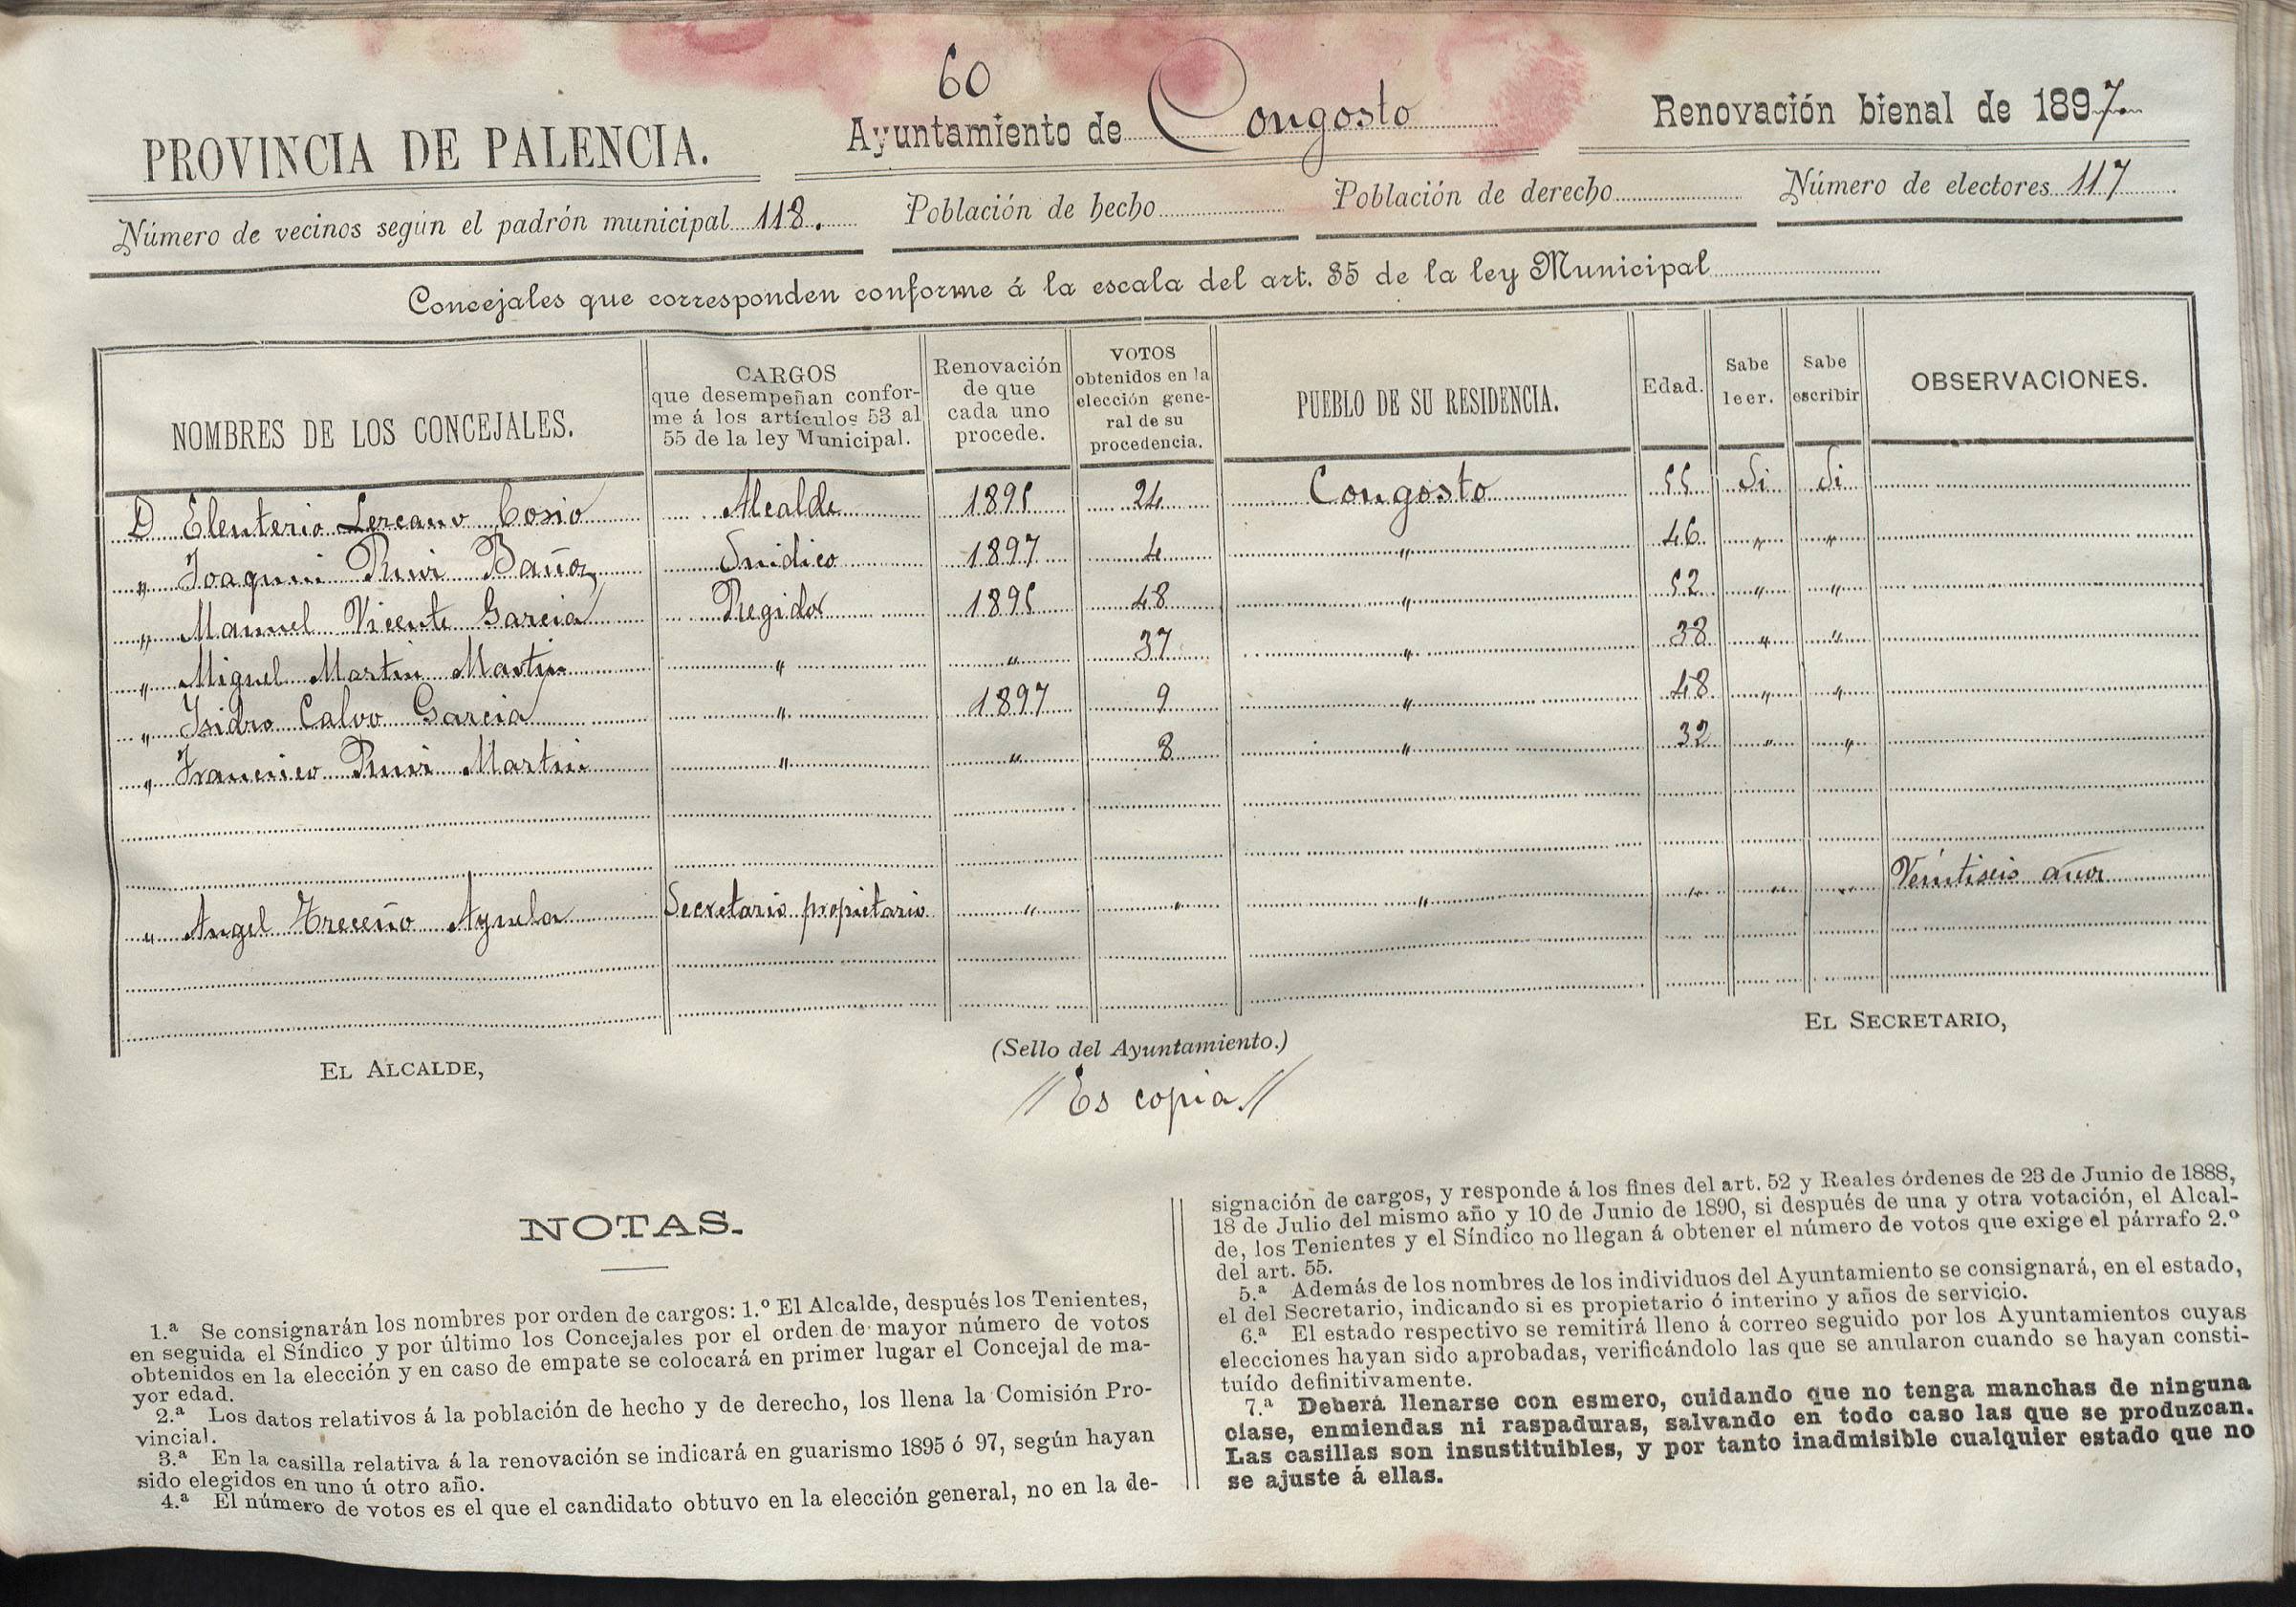 60
PROVINCIA DE PALENCIA.
Ayuntamiento de Congosto
Renovación bienal de 1897
Número de vecinos según el padrón municipal 118.
Población de hecho
Población de derecho
Número de electores 117
Concejales que corresponden conforme á la escala del art. 35 de la ley Municipal
NOMBRES DE LOS CONCEJALES.
CARGOS
que desempeñan confor-
me á los artículos 53 al
55 de la ley Municipal.
Renovación
de que
cada uno
procede.
VOTOS
obtenidos en la
elección gene-
ral de su
procedencia.
PUEBLO DE SU RESIDENCIA.
Edad.
Sabe
leer.
Sabe
escribir
OBSERVACIONES.
D Eleuterio Lezcano Cosio Alcalde 1895 24 Congosto 55 Si Si
" Joaquin Ruiz Baños Sindico 1897 4 " 46 " "
" Manuel Vicente Garcia Regidor 1895 48 " 52 " "
" Miguel Martin Martin " " 37 " 38 " "
" Isidro Calvo Garcia " 1897 9 " 48 " "
" Francisco Ruiz Martin " " 8 " 32 " "
" Angel Treceño Ayuela Secretario propietario " " " " " " Veintiseis años
EL ALCALDE,
(Sello del Ayuntamiento.)
EL SECRETARIO,
// Es copia //
NOTAS.
1.ª Se consignarán los nombres por orden de cargos: 1.º El Alcalde, después los Tenientes,
en seguida el Síndico y por último los Concejales por el orden de mayor número de votos
obtenidos en la elección y en caso de empate se colocará en primer lugar el Concejal de ma-
yor edad.
2.ª Los datos relativos á la población de hecho y de derecho, los llena la Comisión Pro-
vincial.
3.ª En la casilla relativa á la renovación se indicará en guarismo 1895 ó 97, según hayan
sido elegidos en uno ú otro año.
4.ª El número de votos es el que el candidato obtuvo en la elección general, no en la de-
signación de cargos, y responde á los fines del art. 52 y Reales órdenes de 23 de Junio de 1888,
18 de Julio del mismo año y 10 de Junio de 1890, si después de una y otra votación, el Alcal-
de, los Tenientes y el Síndico no llegan á obtener el número de votos que exige el párrafo 2.º
del art. 55.
5.ª Además de los nombres de los individuos del Ayuntamiento se consignará, en el estado,
el del Secretario, indicando si es propietario ó interino y años de servicio.
6.ª El estado respectivo se remitirá lleno á correo seguido por los Ayuntamientos cuyas
elecciones hayan sido aprobadas, verificándolo las que se anularon cuando se hayan consti-
tuído definitivamente.
7.ª Deberá llenarse con esmero, cuidando que no tenga manchas de ninguna
clase, enmiendas ni raspaduras, salvando en todo caso las que se produzcan.
Las casillas son insustituibles, y por tanto inadmisible cualquier estado que no
se ajuste á ellas.